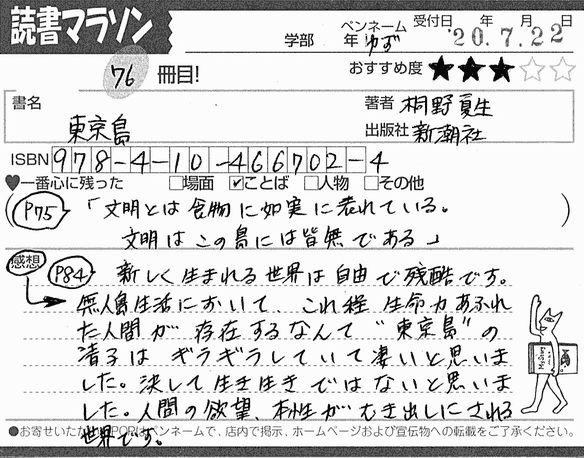 読書マラソン
学部 年 ペンネーム ゆず 受付日 '20.7.22 年 月 日
76 冊目! おすすめ度 ★★★☆☆
書名 東京島
著者 桐野夏生
出版社 新潮社
ISBN 978-4-10-466702-4
♥一番心に残った □場面 ☑ことば □人物 □その他
(P75 「文明とは食物に如実に表れている。
文明はこの島には皆無である」)
感想 P84 新しく生まれる世界は自由で残酷です。
無人島生活において、これ程生命力あふれ
た人間が存在するなんて“東京島”の
清子はギラギラしていて凄いと思いま
した。決して生き生きではないと思いま
した。人間の欲望、本性がむき出しにされる
世界です。
●お寄せいただいたPOPはペンネームで、店内で掲示、ホームページおよび宣伝物への転載をご了承ください。